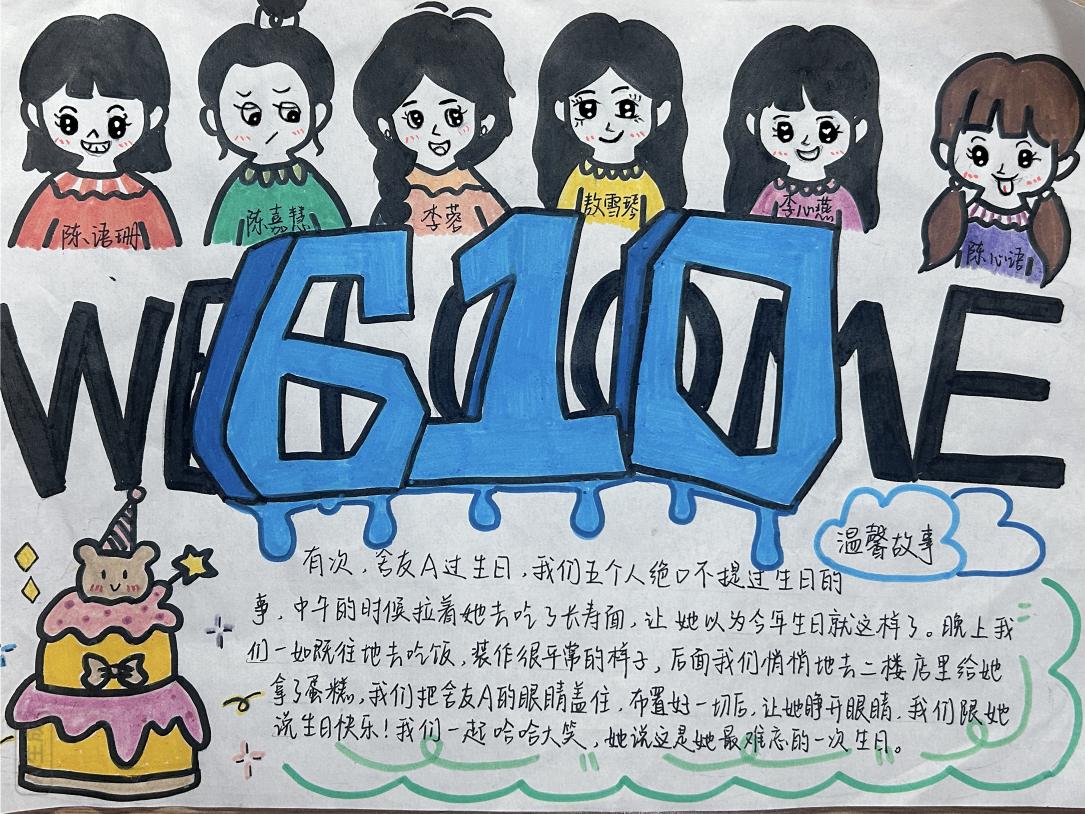 陈语珊
陈嘉慧
李蓉
敖雪琴
李心燕
陈心语
WELCOME
610
温馨故事
有次，舍友A过生日，我们五个人绝口不提过生日的
事，中午的时候拉着她去吃了长寿面，让她以为今年生日就这样了。晚上我
们一如既往地去吃饭，装作很平常的样子，后面我们悄悄地去二楼店里给她
拿了蛋糕，我们把舍友A的眼睛盖住，布置好一切后，让她睁开眼睛，我们跟她
说生日快乐！我们一起哈哈大笑，她说这是她最难忘的一次生日。